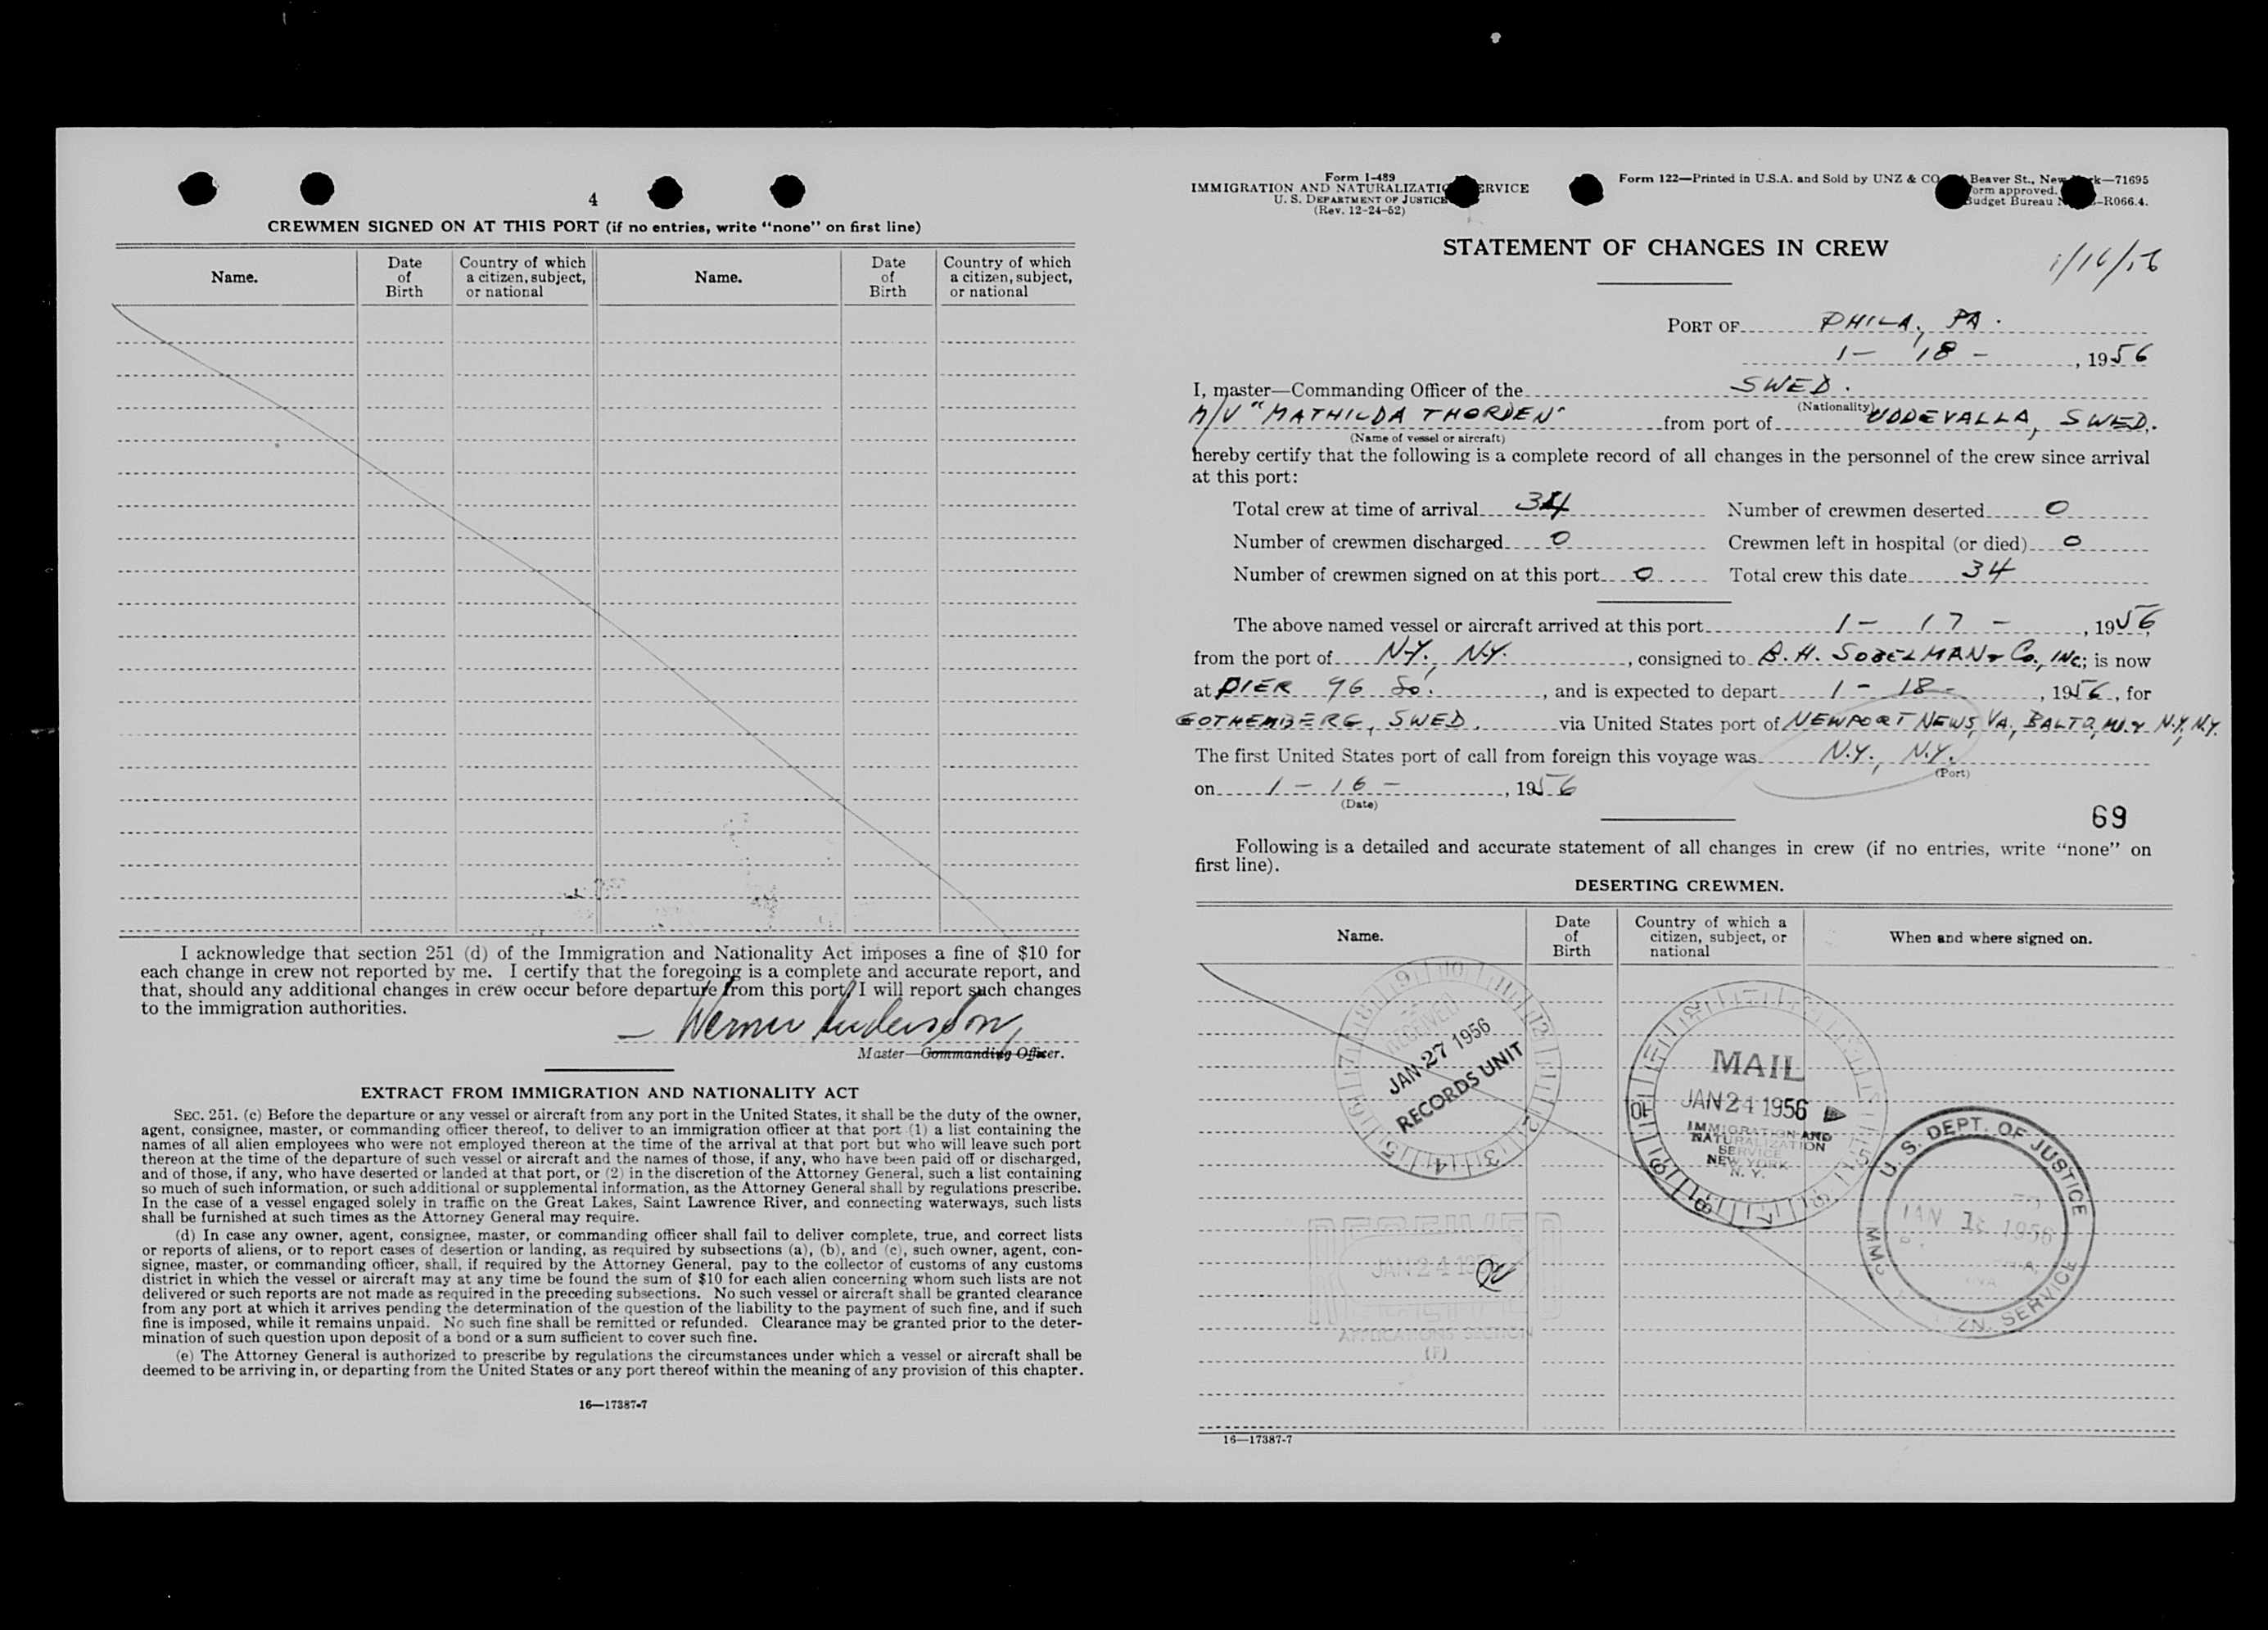 4
CREWMEN SIGNED ON AT THIS PORT (if no entries, write “none” on first line)
Name.
Date of Birth
Country of which a citizen, subject, or national
Name.
Date of Birth
Country of which a citizen, subject, or national
I acknowledge that section 251 (d) of the Immigration and Nationality Act imposes a fine of $10 for
each change in crew not reported by me. I certify that the foregoing is a complete and accurate report, and
that, should any additional changes in crew occur before departure from this port, I will report such changes
to the immigration authorities.
Werner Anderson
Master—Commanding Officer.
EXTRACT FROM IMMIGRATION AND NATIONALITY ACT
SEC. 251. (c) Before the departure or any vessel or aircraft from any port in the United States, it shall be the duty of the owner,
agent, consignee, master, or commanding officer thereof, to deliver to an immigration officer at that port (1) a list containing the
names of all alien employees who were not employed thereon at the time of the arrival at that port but who will leave such port
thereon at the time of the departure of such vessel or aircraft and the names of those, if any, who have been paid off or discharged,
and of those, if any, who have deserted or landed at that port, or (2) in the discretion of the Attorney General, such a list containing
so much of such information, or such additional or supplemental information, as the Attorney General shall by regulations prescribe.
In the case of a vessel engaged solely in traffic on the Great Lakes, Saint Lawrence River, and connecting waterways, such lists
shall be furnished at such times as the Attorney General may require.
(d) In case any owner, agent, consignee, master, or commanding officer shall fail to deliver complete, true, and correct lists
or reports of aliens, or to report cases of desertion or landing, as required by subsections (a), (b), and (c), such owner, agent, con-
signee, master, or commanding officer, shall, if required by the Attorney General, pay to the collector of customs of any customs
district in which the vessel or aircraft may at any time be found the sum of $10 for each alien concerning whom such lists are not
delivered or such reports are not made as required in the preceding subsections. No such vessel or aircraft shall be granted clearance
from any port at which it arrives pending the determination of the question of the liability to the payment of such fine, and if such
fine is imposed, while it remains unpaid. No such fine shall be remitted or refunded. Clearance may be granted prior to the deter-
mination of such question upon deposit of a bond or a sum sufficient to cover such fine.
(e) The Attorney General is authorized to prescribe by regulations the circumstances under which a vessel or aircraft shall be
deemed to be arriving in, or departing from the United States or any port thereof within the meaning of any provision of this chapter.
16—17387-7
Form I-489
IMMIGRATION AND NATURALIZATION SERVICE
U. S. DEPARTMENT OF JUSTICE
(Rev. 12-24-52)
Form 122—Printed in U.S.A. and Sold by UNZ & CO Beaver St., New —71695
orm approved.
Budget Bureau -R066.4.
STATEMENT OF CHANGES IN CREW
1/16/56
PORT OF PHILA, PA.
1- 18 -, 1956
I, master—Commanding Officer of the SWED.
(Nationality)
M/V "MATHILDA THORDEN" from port of UDDEVALLA, SWED.
(Name of vessel or aircraft)
hereby certify that the following is a complete record of all changes in the personnel of the crew since arrival
at this port:
Total crew at time of arrival 34 Number of crewmen deserted 0
Number of crewmen discharged 0 Crewmen left in hospital (or died) 0
Number of crewmen signed on at this port 0 Total crew this date 34
The above named vessel or aircraft arrived at this port 1 - 17 -, 1956,
from the port of N.Y., N.Y., consigned to B. H. SOBELMAN & Co., INC; is now
at PIER 96 So., and is expected to depart 1 - 18 -, 1956, for
GOTHEMBERG, SWED. via United States port of NEWPORT NEWS, VA, BALTO, MD. & N.Y., N.Y.
The first United States port of call from foreign this voyage was N.Y., N.Y.
(Port)
on 1 - 16 -, 1956
(Date)
69
Following is a detailed and accurate statement of all changes in crew (if no entries, write “none” on
first line).
DESERTING CREWMEN.
Name.
Date of Birth
Country of which a citizen, subject, or national
When and where signed on.
RECEIVED
JAN 27 1956
RECORDS UNIT
MAIL
JAN 24 1956
IMMIGRATION AND
NATURALIZATION
SERVICE
NEW YORK
N. Y.
U. S. DEPT. OF JUSTICE
JAN 1956
SERVICE
RECEIVED
JAN 24 1956
APPLICATIONS SECTION
16—17387-7